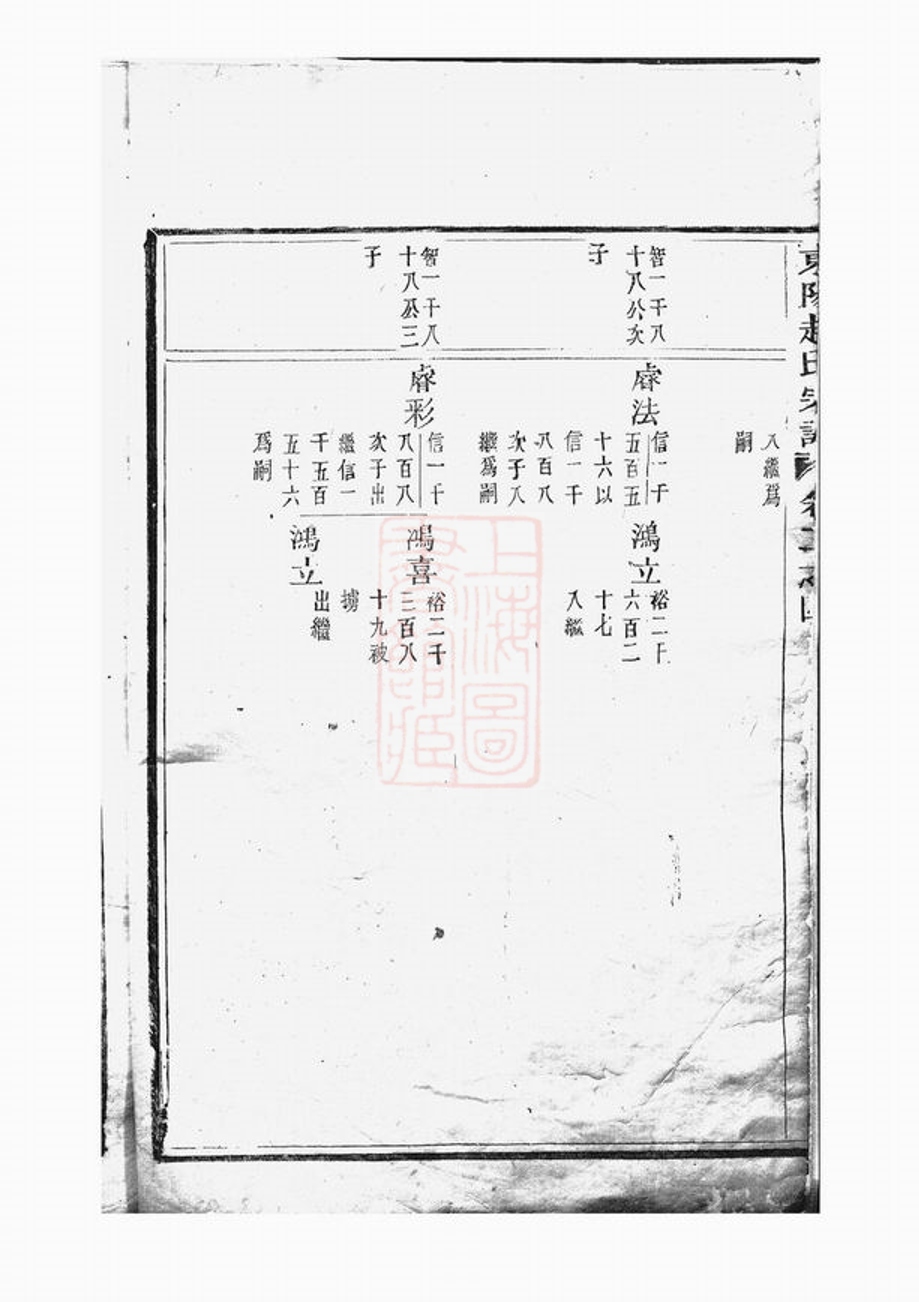 東陽趙氏宗譜
入繼爲
嗣
智一千八
十八公次
子
睿法
信一千
五百五
十六以
信一千
八百八
次子入
繼爲嗣
鴻立
裕二千
六百二
十七
入繼
智一千八
十八公三
子
睿彩
信一千
八百八
次子出
繼信一
千五百
五十六
爲嗣
鴻喜
裕二千
三百八
十九被
擄
鴻立
出繼
上海圖
書館藏